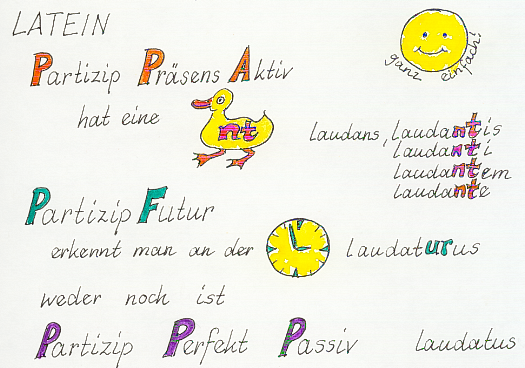 LATEIN
ganz einfach!
Partizip Präsens Aktiv
hat eine nt laudans, laudantis
laudanti
laudantem
laudante
Partizip Futur
erkennt man an der laudaturus
weder noch ist
Partizip Perfekt Passiv laudatus